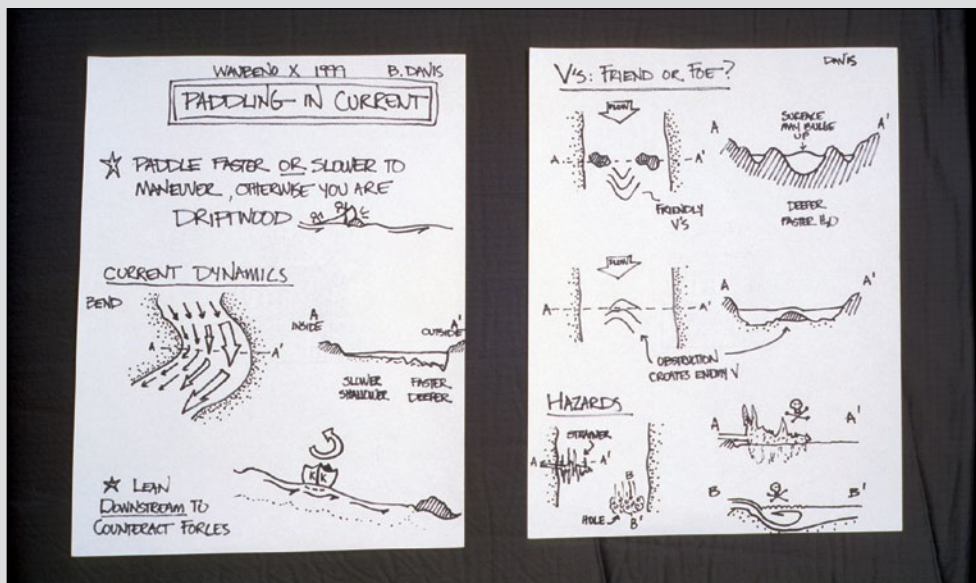 WANBENO X 1999 B. DAVIS
PADDLING IN CURRENT
PADDLE FASTER OR SLOWER TO
MANEUVER, OTHERWISE YOU ARE
DRIFTWOOD
CURRENT DYNAMICS
BEND
A A'
A
INSIDE
A'
OUTSIDE
SLOWER
SHALLOWER
FASTER
DEEPER
K K
LEAN
DOWNSTREAM TO
COUNTERACT FORCES
DAVIS
V'S: FRIEND OR FOE?
FLOW
A A'
FRIENDLY
V'S
A A'
SURFACE
MAY BULGE
UP
DEEPER
FASTER H2O
FLOW
A A'
A A'
OBSTRUCTION
CREATES ENEMY V
HAZARDS
STRAINER
A A'
B
HOLE
B'
A A'
B B'